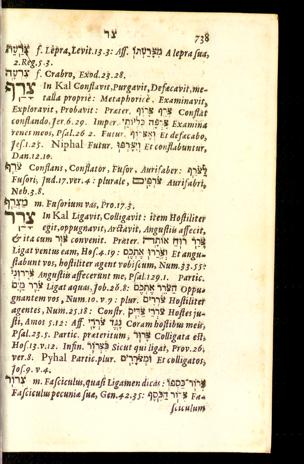 צר 738
צָרַעַת f. Lepra, Levit. 13.3: Aff. מִצָּרַעְתּוֹ A lepra sua,
2. Reg. 5.3.
צִרְעָה f. Crabro, Exod. 23.28.
צָרַף In Kal Conflavit, Purgavit, Defæcavit, me-
talla propriè: Metaphoricè. Examinavit,
Exploravit, Probavit: Præter. צָרַף צָרוֹף Conflat
conflando. Jer. 6.29. Imper. צָרְפָה כִלְיוֹתַי Examina
renes meos, Psal. 26.2. Futur. וְאֶצְרֹף Et defæcabo,
Jes. 1.25. Niphal Futur. וְיִצָּרְפוּ Et conflabuntur,
Dan. 12.10.
צֹרֵף Conflans, Conflator, Fusor, Aurifaber: לַצֹּרֵף
Fusori, Jud. 17. ver. 4: plurale, צֹרְפִים Aurifabri,
Neh. 3.8.
מַצְרֵף m. Fusorium vas, Pro. 17.3.
צָרַר In Kal Ligavit, Colligavit: item Hostiliter
egit, oppugnavit, Arctavit, Angustiis affecit,
& ita cum צוּר convenit. Præter. צָרַר רוּחַ אוֹתָהּ
Ligat ventus eam, Hos. 4.19: וְצָרְרוּ אֶתְכֶם Et angu-
stabunt vos, hostiliter agent vobiscum, Num. 33.55:
צְרָרוּנִי Angustiis affecerunt me, Psal. 129.1. Partic.
צֹרֵר מַיִם Ligat aquas, Job. 26.8: הַצֹּרֵר אֶתְכֶם Oppu-
gnantem vos, Num. 10. v. 9: plur. צֹרְרִים Hostiliter
agentes, Num. 25.18: Constr. צֹרְרֵי צַדִּיק Hostes ju-
sti, Amos 5.12: Aff. נֶגֶד צֹרְרָי Coram hostibus meis,
Psal. 23.5. Partic. præteritum, צָרוּר Colligata est,
Hos. 13. v. 12. Infin. כִּצְרוֹר Sicut qui ligat, Prov. 26,
ver. 8. Pyhal Partic. plur. וּמְצֹרָרִים Et colligatos,
Jos. 9. v. 4.
צְרוֹר m. Fasciculus, quasi Ligamen dicas: צְרוֹר־כַּסְפּוֹ
Fasciculus pecuniæ suæ, Gen. 42.35: צְרוֹר הַכֶּסֶף Fa-
sciculum